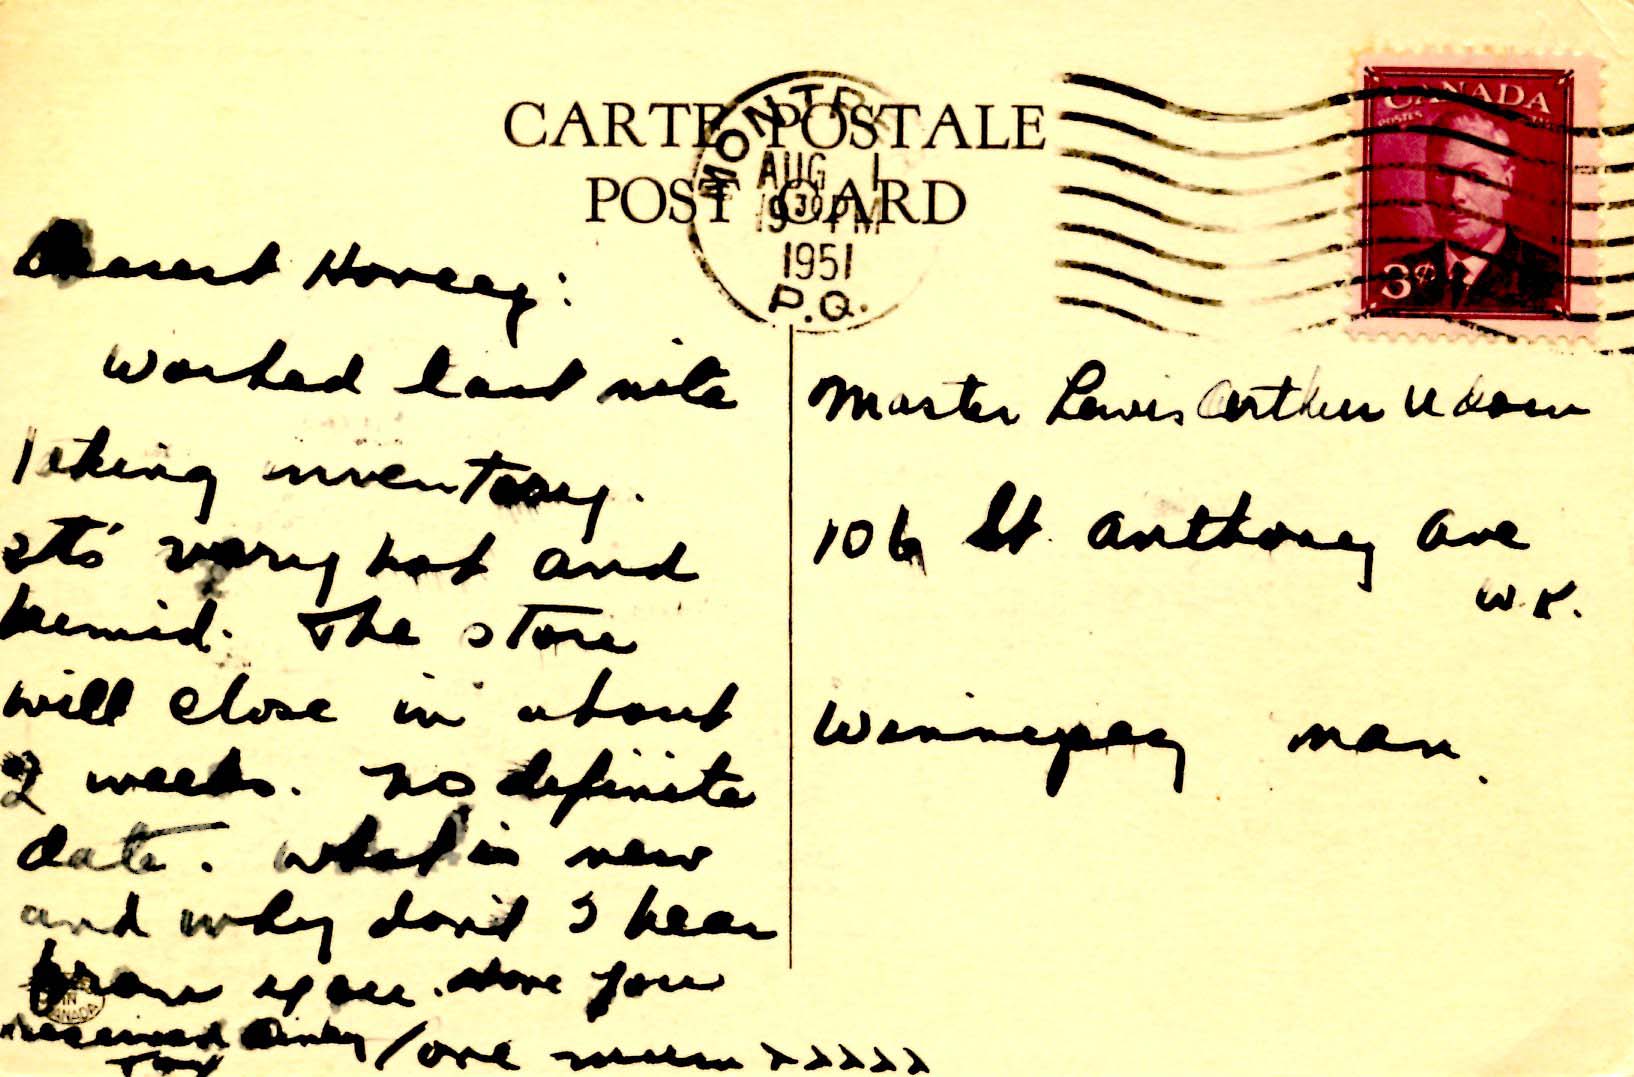 CARTE POSTALE
POST CARD
MONTR
AUG 1
1930 PM
1951
P.Q.
CANADA
POSTES
3¢
Dearest Honey:
Worked last nite
taking inventory.
It's very hot and
humid. The store
will close in about
2 weeks. No definite
date. What is new
and why don't I hear
from you. Have you
received Dinky
Toy / Love Mum xxxxx
IN
CANADA
Master Lewis Arthur Udow
106 St. Anthony Ave
W.K.
Winnipeg Man.